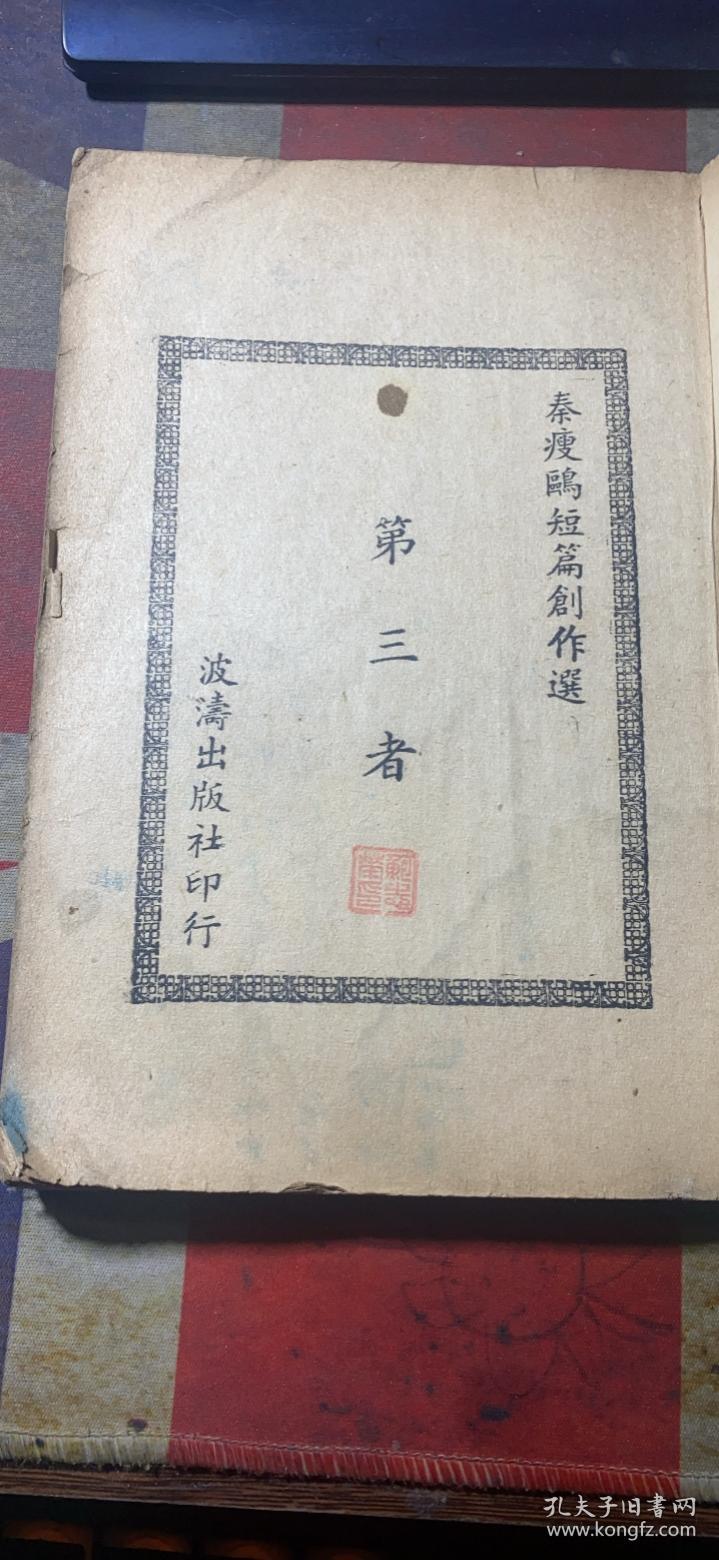 秦瘦鷗短篇創作選
第三者
波濤出版社印行
孔夫子旧书网
www.kongfz.com